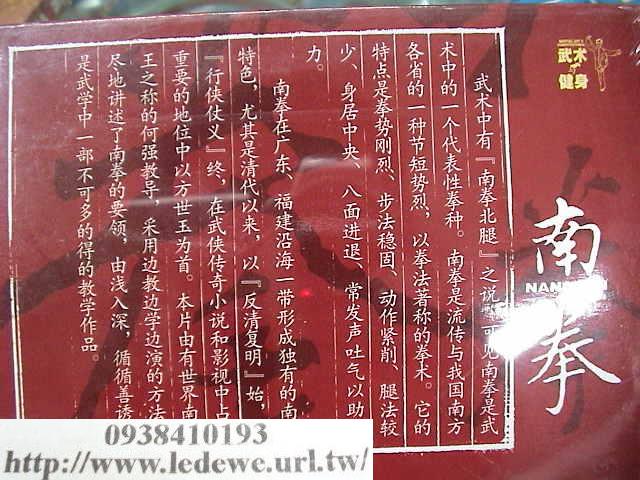 武术
健身
南拳
NAN
武术中有『南拳北腿』之说，可见南拳是武
术中的一个代表性拳种。南拳是流传与我国南方
各省的一种节短势烈，以拳法著称的拳术。它的
特点是拳势刚烈、步法稳固、动作紧削、腿法较
少、身居中央、八面进退、常发声吐气以助
力。
南拳在广东、福建沿海一带形成独有的南
特色，尤其是清代以来，以『反清复明』始，
『行侠仗义』终，在武侠传奇小说和影视中占
重要的地位中以方世玉为首。本片由有世界南
王之称的何强教导，采用边教边学边演的方法
尽地讲述了南拳的要领，由浅入深，循循善诱
是武学中一部不可多的得的教学作品。
0938410193
http://www.ledewe.url.tw/